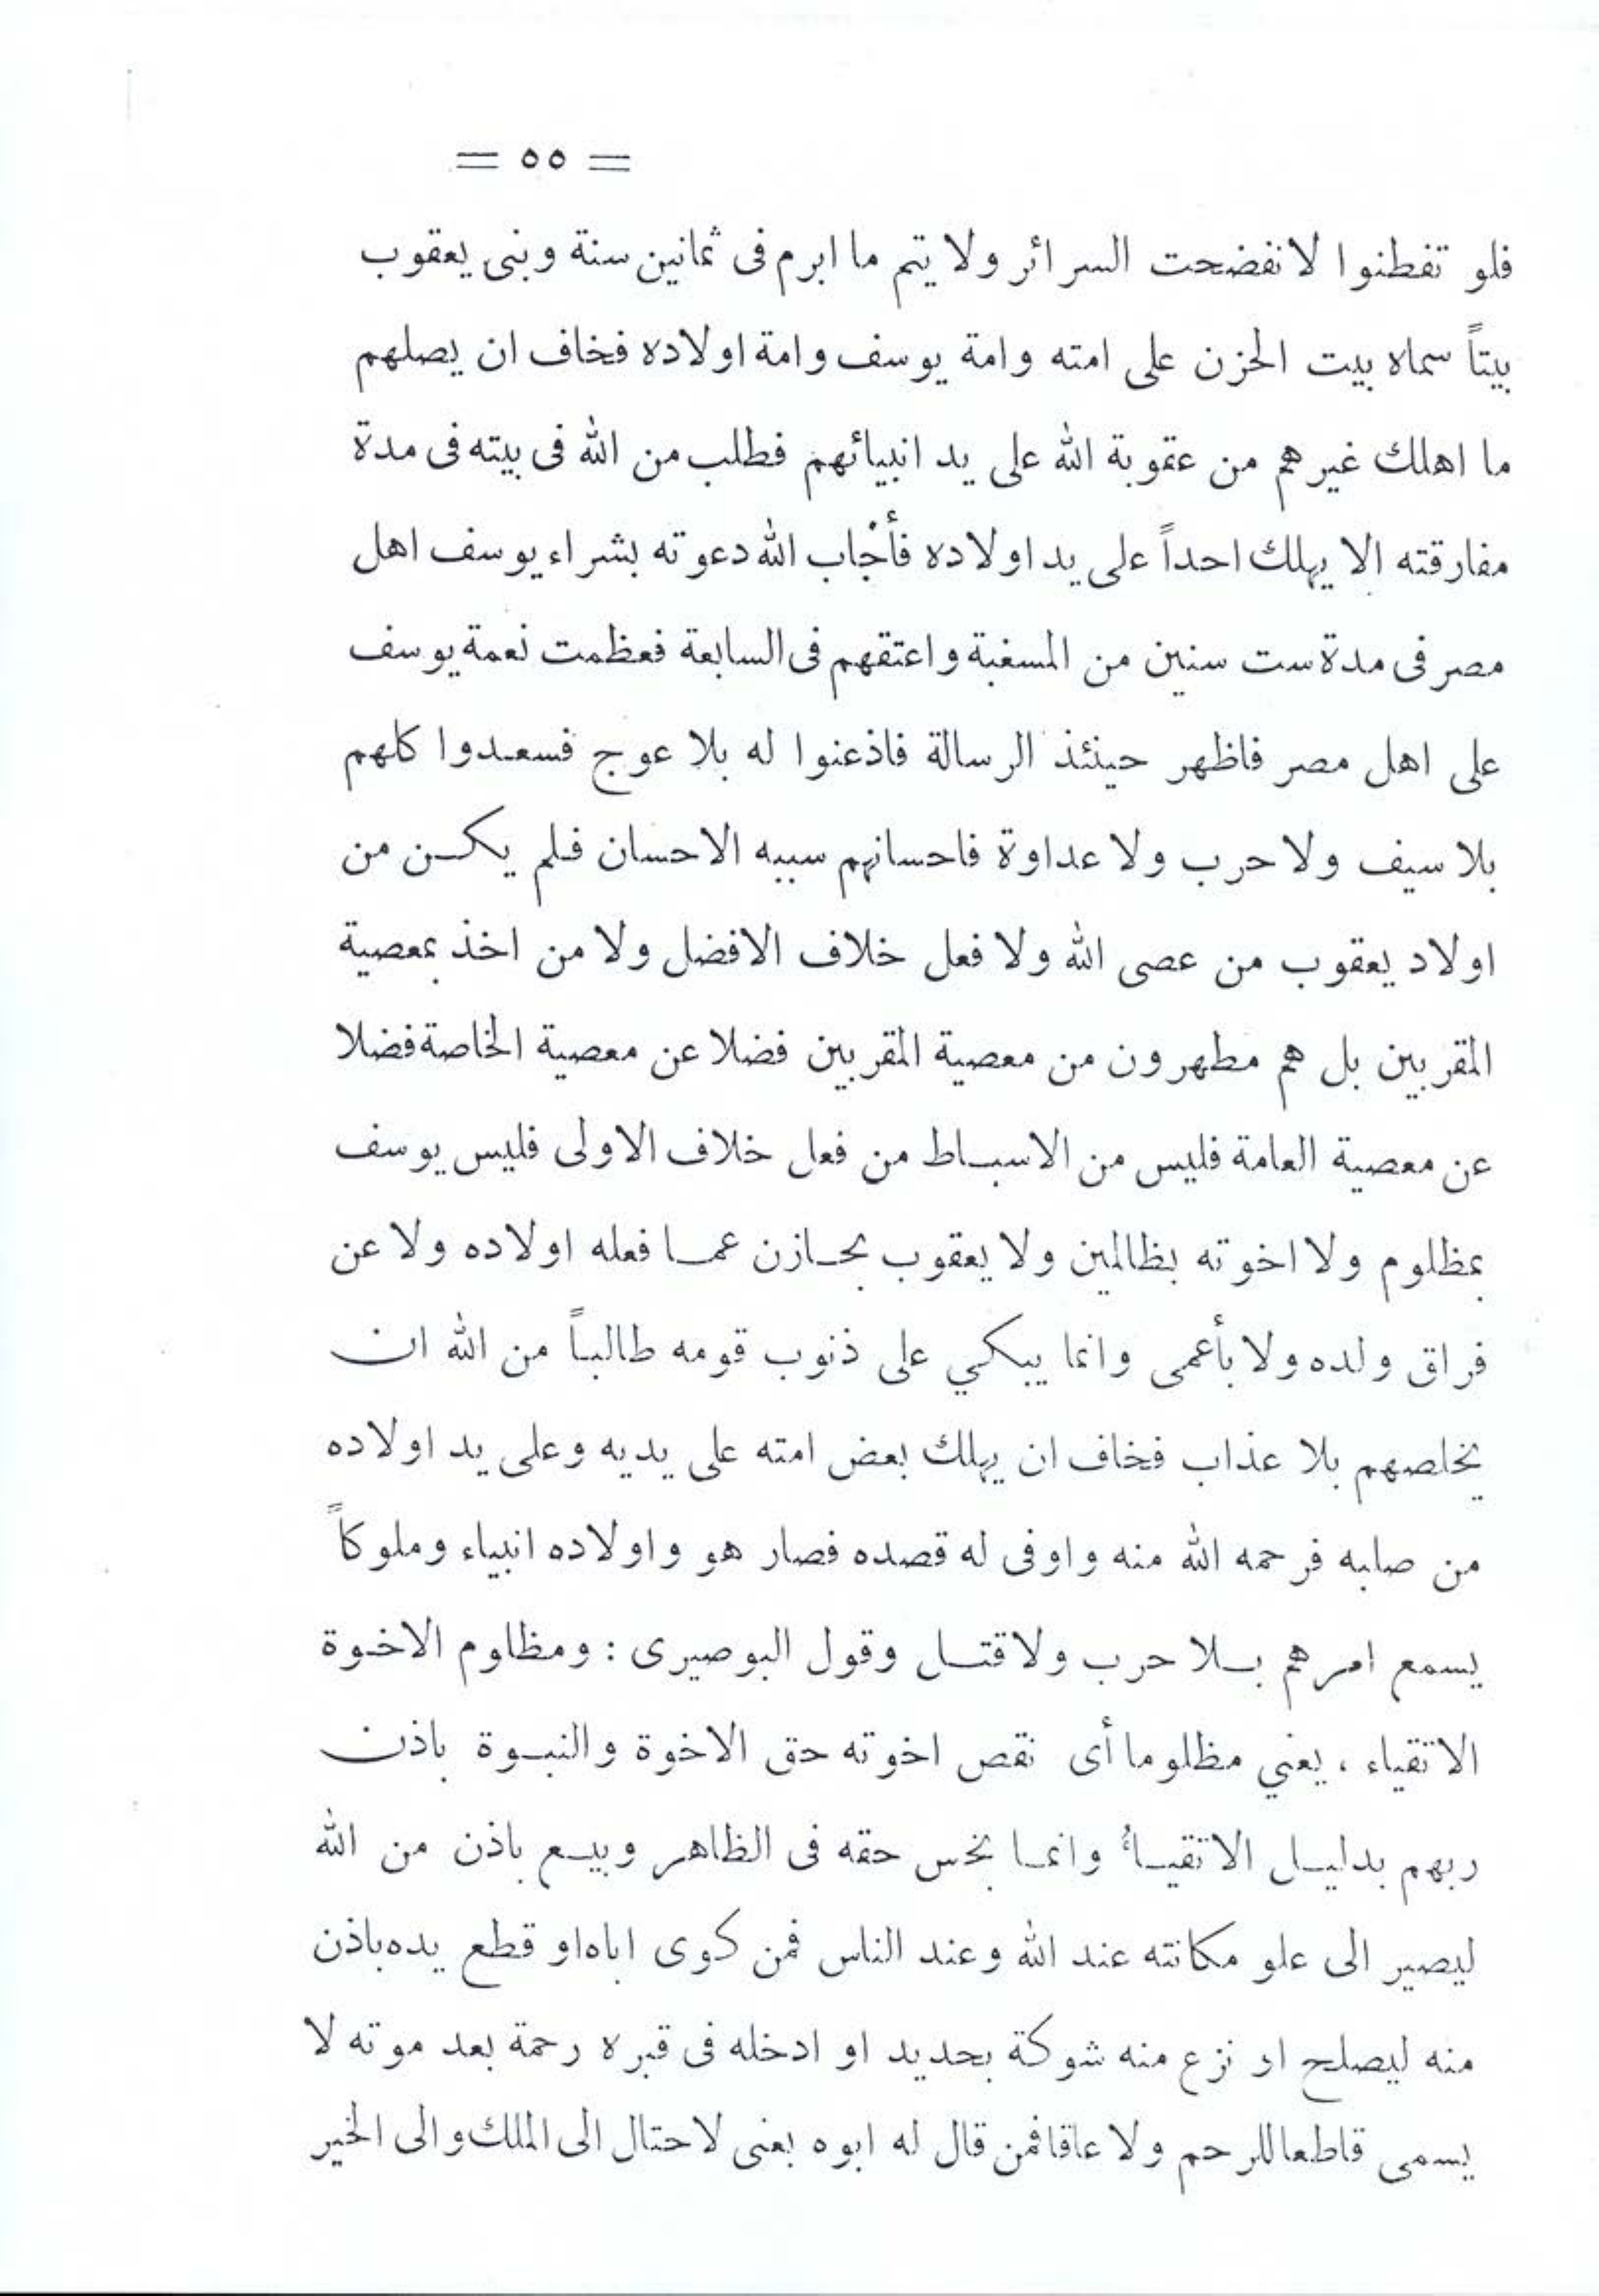 = ٥٥ =
فلو تفطنوا لانفضحت السرائر ولا يتم ما ابرم فى ثمانين سنة وبنى يعقوب
بيتاً سماه بيت الحزن على امته وامة يوسف وامة اولاده فخاف ان يصلهم
ما اهلك غيرهم من عقوبة الله على يد انبيائهم فطلب من الله فى بيته فى مدة
مفارقته الا يهلك احداً على يد اولاده فأجاب الله دعوته بشراء يوسف اهل
مصر فى مدة ست سنين من المسغبة واعتقهم فى السابعة فعظمت نعمة يوسف
على اهل مصر فاظهر حينئذ الرسالة فاذعنوا له بلا عوج فسعدوا كلهم
بلا سيف ولا حرب ولا عداوة فاحسانهم سببه الاحسان فلم يكن من
اولاد يعقوب من عصى الله ولا فعل خلاف الافضل ولا من اخذ بمعصية
المقربين بل هم مطهرون من معصية المقربين فضلا عن معصية الخاصة فضلا
عن معصية العامة فليس من الاسباط من فعل خلاف الاولى فليس يوسف
بمظلوم ولا اخوته بظالمين ولا يعقوب بحازن عما فعله اولاده ولا عن
فراق ولده ولا بأعمى وانما يبكي على ذنوب قومه طالباً من الله ان
يخلصهم بلا عذاب فخاف ان يهلك بعض امته على يديه وعلى يد اولاده
من صلبه فرحمه الله منه واوفى له قصده فصار هو واولاده انبياء وملوكاً
يسمع امرهم بلا حرب ولا قتل وقول البوصيرى : ومظلوم الاخوة
الاتقياء ، يعني مظلوما أى نقص اخوته حق الاخوة والنبوة باذن
ربهم بدليل الاتقياء وانما بخس حقه فى الظاهر وبيع باذن من الله
ليصير الى علو مكانته عند الله وعند الناس فمن كوى اباه او قطع يده باذن
منه ليصلح او نزع منه شوكة بحديد او ادخله فى قبره رحمة بعد موته لا
يسمى قاطعا للرحم ولا عاقا فمن قال له ابوه بعنى لاحتال الى الملك والى الخير